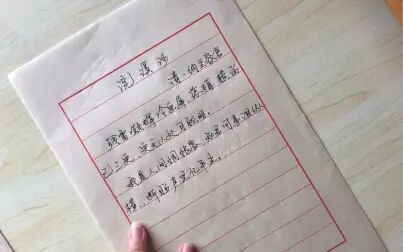 浣溪沙
清·纳兰容若
残雪凝辉冷画屏，落梅横笛
已三更，更无人处月胧明。
我是人间惆怅客，知君何事泪纵
横，断肠声里忆平生。